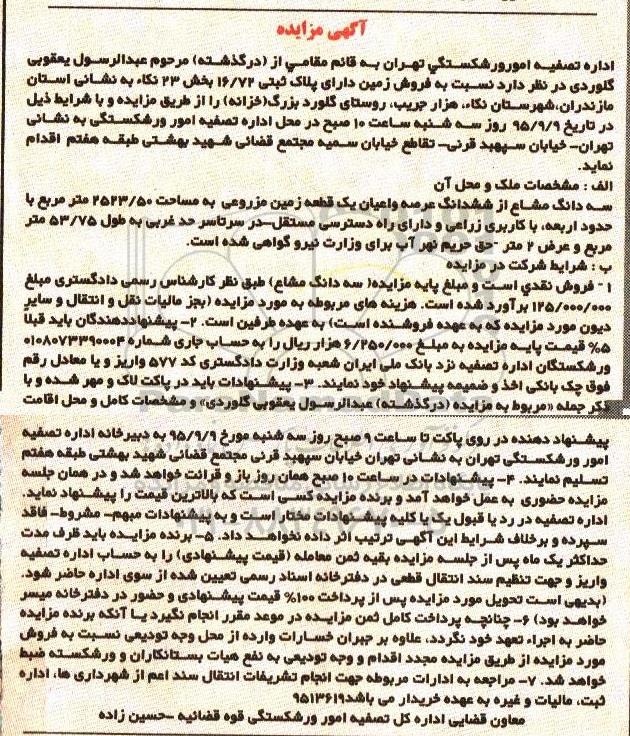 آگهی مزایده
اداره تصفیه امورورشکستگی تهران به قائم مقامی از (درگذشته) مرحوم عبدالرسول یعقوبی
گلوردی در نظر دارد نسبت به فروش زمین دارای پلاک ثبتی ۱۶/۷۲ بخش ۲۳ نکاء به نشانی استان
مازندران،شهرستان نکاء، هزار جریب، روستای گلورد بزرگ(خزانه) را از طریق مزایده و با شرایط ذیل
در تاریخ ۹۵/۹/۹ روز سه شنبه ساعت ۱۰ صبح در محل اداره تصفیه امور ورشکستگی به نشانی
تهران- خیابان سپهبد قرنی- تقاطع خیابان سمیه مجتمع قضائی شهید بهشتی طبقه هفتم اقدام
نماید.
الف : مشخصات ملک و محل آن
سه دانگ مشاع از ششدانگ عرصه واعیان یک قطعه زمین مزروعی به مساحت ۲۵۲۳/۵۰ متر مربع با
حدود اربعه، با کاربری زراعی و دارای راه دسترسی مستقل-در سرتاسر حد غربی به طول ۵۳/۷۵ متر
مربع و عرض ۲ متر -حق حریم نهر آب برای وزارت نیرو گواهی شده است.
ب : شرایط شرکت در مزایده
۱- فروش نقدی است و مبلغ پایه مزایده( سه دانگ مشاع) طبق نظر کارشناس رسمی دادگستری مبلغ
۱۲۵/۰۰۰/۰۰۰ برآورد شده است. هزینه های مربوطه به مورد مزایده (بجز مالیات نقل و انتقال و سایر
دیون مورد مزایده که به عهده فروشنده است) به عهده طرفین است. ۲- پیشنهاددهندگان باید قبلاً
۵% قیمت پایه مزایده به مبلغ ۶/۲۵۰/۰۰۰ هزار ریال را به حساب جاری شماره ۰۱۰۸۰۷۳۳۹۰۰۰۴
ورشکستگان اداره تصفیه نزد بانک ملی ایران شعبه وزارت دادگستری کد ۵۷۷ واریز و یا معادل رقم
فوق چک بانکی اخذ و ضمیمه پیشنهاد خود نمایند. ۳- پیشنهادات باید در پاکت لاک و مهر شده و با
ذکر جمله «مربوط به مزایده (درگذشته) عبدالرسول یعقوبی گلوردی» و مشخصات کامل و محل اقامت
پیشنهاد دهنده در روی پاکت تا ساعت ۹ صبح روز سه شنبه مورخ ۹۵/۹/۹ به دبیرخانه اداره تصفیه
امور ورشکستگی تهران به نشانی تهران خیابان سپهبد قرنی مجتمع قضائی شهید بهشتی طبقه هفتم
تسلیم نمایند. ۴- پیشنهادات در ساعت ۱۰ صبح همان روز باز و قرائت خواهد شد و در همان جلسه
مزایده حضوری به عمل خواهد آمد و برنده مزایده کسی است که بالاترین قیمت را پیشنهاد نماید.
اداره تصفیه در رد یا قبول یک یا کلیه پیشنهادات مختار است و به پیشنهادات مبهم- مشروط- فاقد
سپرده و برخلاف شرایط این آگهی ترتیب اثر داده نخواهد داد. ۵- برنده مزایده باید ظرف مدت
حداکثر یک ماه پس از جلسه مزایده بقیه ثمن معامله (قیمت پیشنهادی) را به حساب اداره تصفیه
واریز و جهت تنظیم سند انتقال قطعی در دفترخانه اسناد رسمی تعیین شده از سوی اداره حاضر شود.
(بدیهی است تحویل مورد مزایده پس از پرداخت ۱۰۰% قیمت پیشنهادی و حضور در دفترخانه میسر
خواهد بود) ۶- چنانچه پرداخت کامل ثمن مزایده در موعد مقرر انجام نگیرد یا آنکه برنده مزایده
حاضر به اجراء تعهد خود نگردد، علاوه بر جبران خسارات وارده از محل وجه تودیعی نسبت به فروش
مورد مزایده از طریق مزایده مجدد اقدام و وجه تودیعی به نفع هیات بستانکاران و ورشکسته ضبط
خواهد شد. ۷- مراجعه به ادارات مربوطه جهت انجام تشریفات انتقال سند اعم از شهرداری ها، اداره
ثبت، مالیات و غیره به عهده خریدار می باشد۹۵۱۳۶۱۹
معاون قضایی اداره کل تصفیه امور ورشکستگی قوه قضائیه -حسین زاده